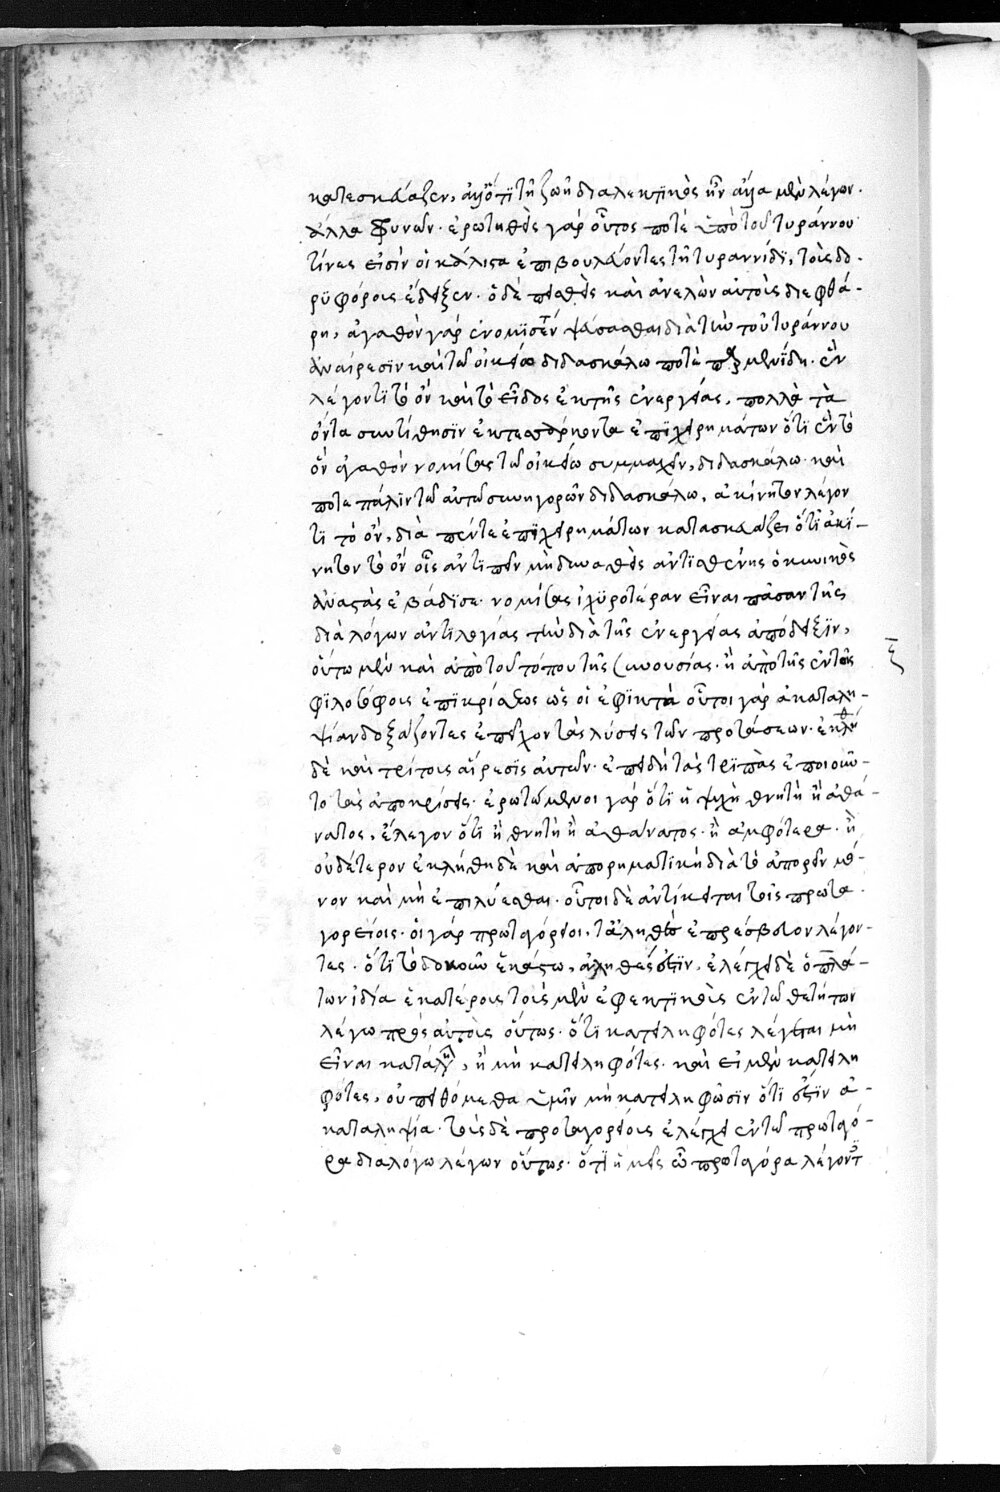 κατεσκεύαζεν, ἀλλ' ὅτι τῇ ζωῇ διαλεκτικὸς ἦν ἄλλα μὲν λέγων.
ἄλλα φρονῶν. ἐρωτηθεὶς γὰρ οὗτος ποτὲ ὑπὸ τοῦ τυράννου
τίνες εἰσὶν οἱ μάλιστα ἐπιβουλεύοντες τῇ τυραννίδι, τοὺς δο-
ρυφόρους ἔδειξεν. ὁ δὲ πεισθεὶς καὶ ἀνελὼν αὐτοὺς διεφθά-
ρη, ἀγαθὸν γὰρ ἐνόμισεν ψεύσασθαι διὰ τὴν τοῦ τυράννου
ἀναίρεσιν καὶ τῷ οἰκείῳ διδασκάλῳ ποτὲ παρμενίδῃ. ἓν
λέγοντι τὸ ὂν κατὰ τὸ εἶδος ἐκ τῆς ἐνεργείας, πολλὰ τὰ
ὄντα συντίθησιν ἐκ τεσσαράκοντα ἐπιχειρημάτων ὅτι ἓν τὸ
ὂν ἀγαθὸν νομίσας τῷ οἰκείῳ συμμαχεῖν, διδασκάλῳ. καὶ
ποτε πάλιν τῷ αὐτῷ συνηγορῶν διδασκάλῳ, ἀκίνητον λέγον
τι τὸ ὂν, διὰ πέντε ἐπιχειρημάτων κατασκευάζει ὅτι ἀκί-
νητον τὸ ὂν οἷς ἀντιπεῖν μὴ δυναθεὶς ἀντισθένης ὁ κυνικὸς
ἀναστὰς ἐβάδισε. νομίσας ἰσχυροτέραν εἶναι πάσαν τῆς
διὰ λόγων ἀντιλογίας τὴν διὰ τῆς ἐνεργείας ἀπόδειξιν,
οὕτω μὲν καὶ ἀπὸ τοῦ τόπου τῆς συνουσίας. ἢ ἀπὸ τῆς ἐν τοῖς
φιλοσόφοις ἐπικρίσεως ὡς οἱ ἐφεκτικοὶ οὗτοι γὰρ ἀκαταλη-
ψίαν δοξάζοντες ἐπεῖχον τὰς λύσεις τῶν προτάσεων. ἐκλήθη
δὲ καὶ τρίτοις αἵρεσις αὐτῶν. ἐπειδὴ τὰς τριττὰς ἐποιοῦν-
το τὰς ἀποκρίσεις. ἐρωτώμενοι γὰρ ὅτι ἡ ψυχὴ θνητὴ ἢ ἀθά-
νατος, ἔλεγον ὅτι ἢ θνητὴ ἢ ἀθάνατος. ἢ ἀμφότερα. ἢ
οὐδέτερον ἐκλήθη δὲ καὶ ἀπορηματικὴ διὰ τὸ ἀπορεῖν μό-
νον καὶ μὴ ἐπιλύεσθαι. οὗτοι δὲ ἀντίκεινται τοῖς πρωτα
γορείοις. οἱ γὰρ πρωταγόρειοι, τἀληθὲς ἐπρέσβευον λέγον-
τες. ὅτι τὸ δοκοῦν ἑκάστῳ, ἀληθές ἐστιν, ἐλέγχει δὲ ὁ πλά-
των ἰδίᾳ ἑκατέρους τοὺς μὲν ἐφεκτικοὺς ἐν τῷ θεαιτήτῳ
λέγω πρὸς αὐτοὺς οὕτως. ὅτι κατειληφότες λέγεται μὴ
εἶναι κατάληψιν, ἢ μὴ κατειληφότες. καὶ εἰ μὲν κατειλη
φότες, οὐ πειθόμεθα ὑμῖν μὴ κατειληφῶσιν ὅτι ἐστὶν ἀ-
καταληψία. τοὺς δὲ πρωταγορείους ἐλέγχει ἐν τῷ πρωταγό-
ρᾳ διαλόγῳ λέγων οὕτως. ὅτι ἡμεῖς ὦ πρωταγόρα λέγοντ
ξ